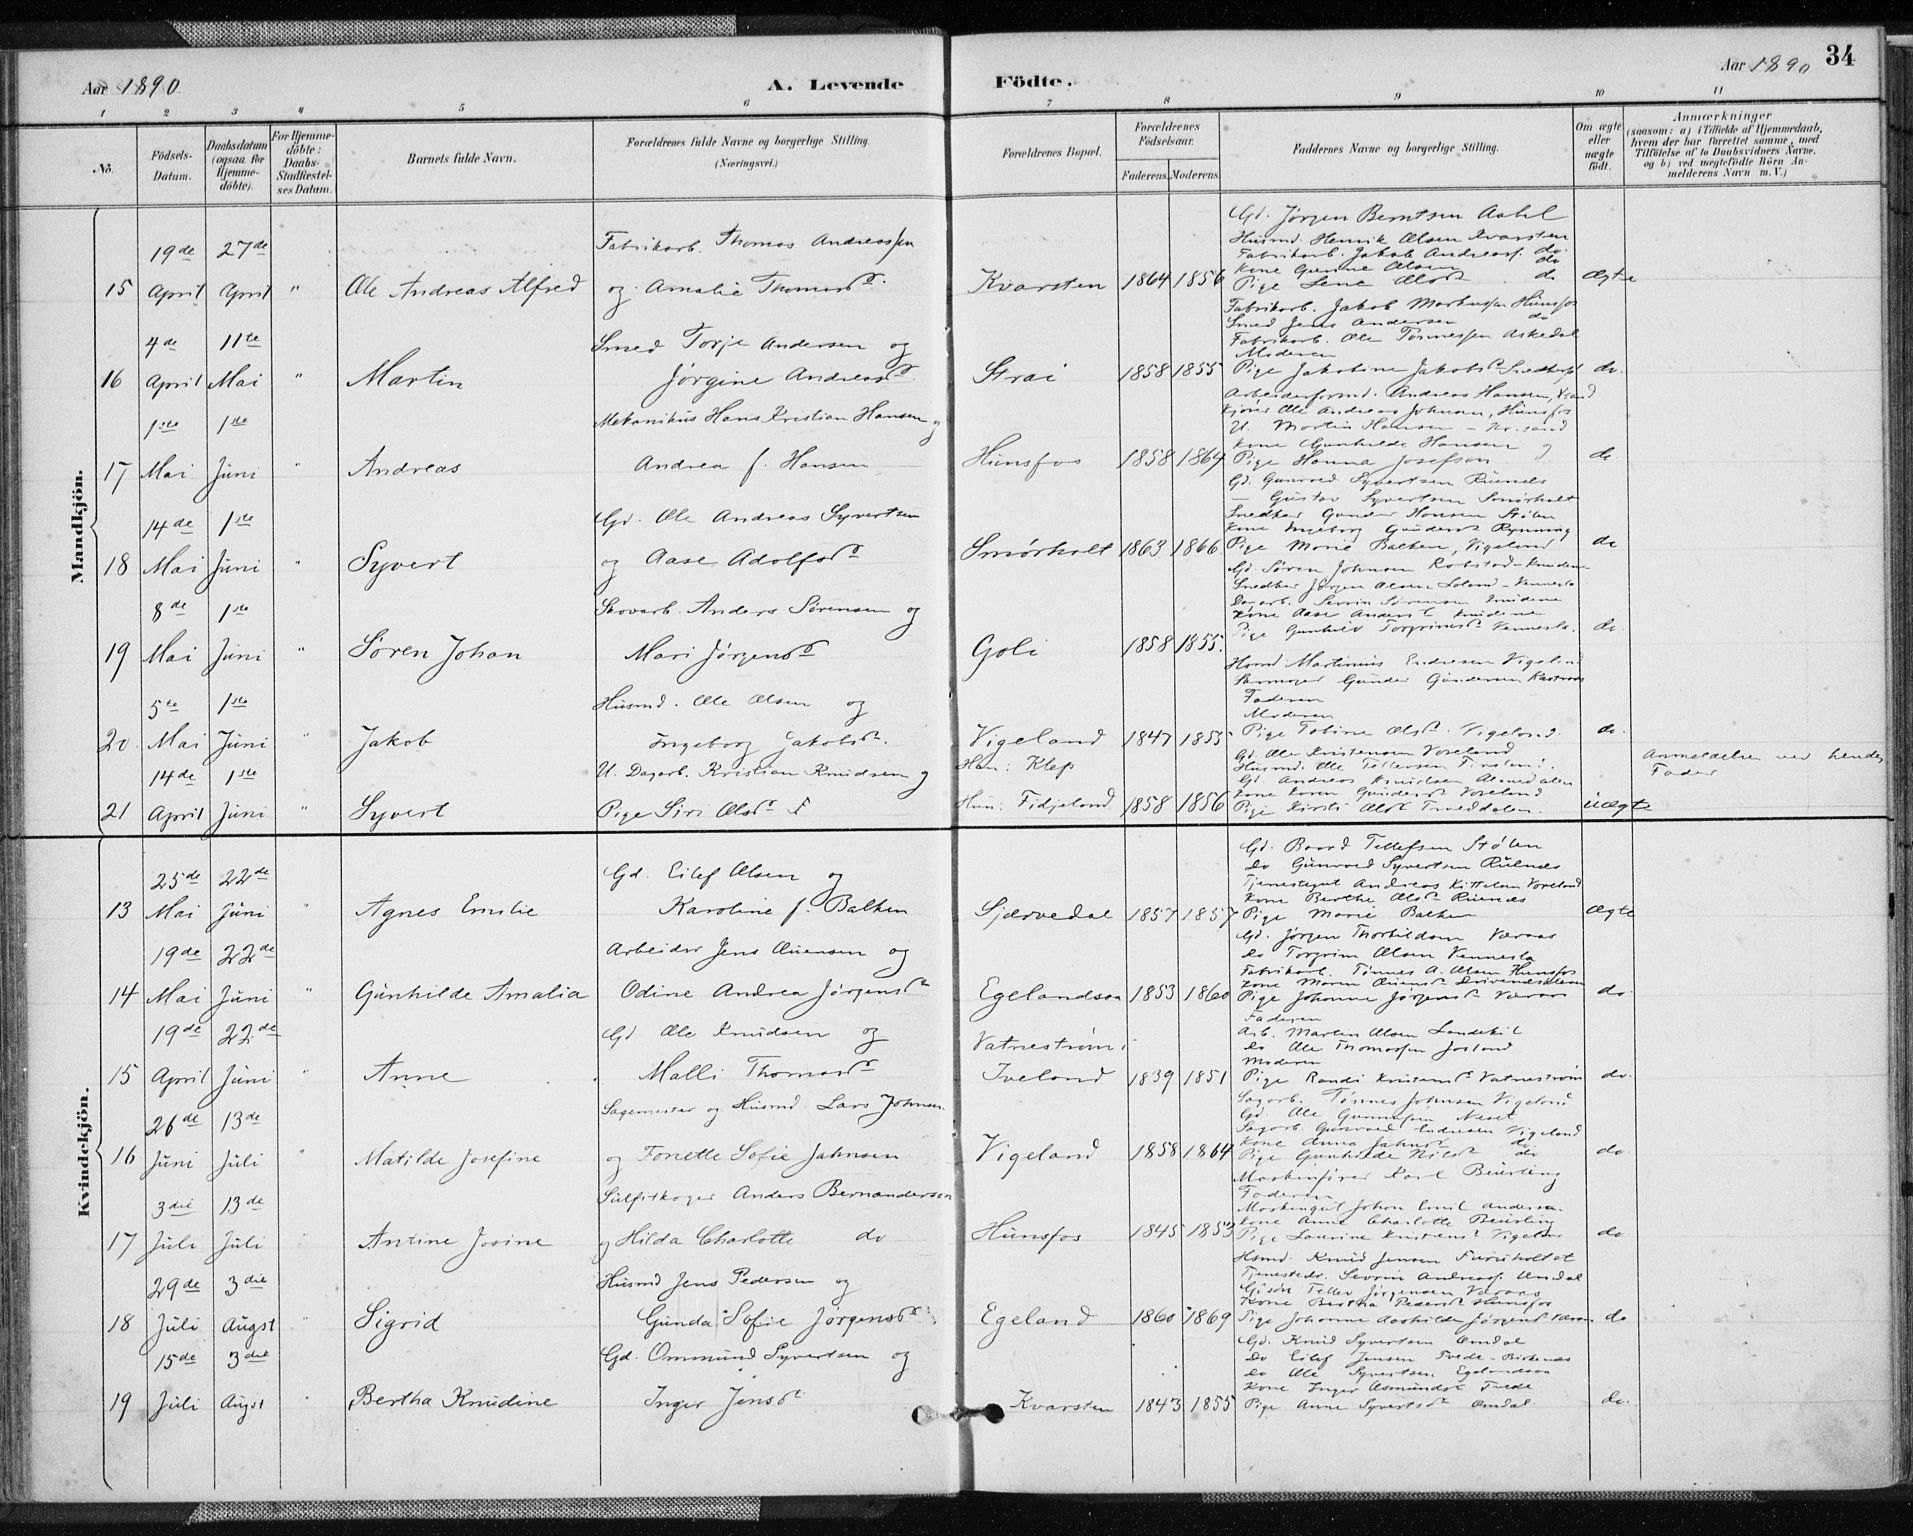 Aar 1890.
A. Levende Födte.
Aar 1890
34
1 2 3 4 5 6 7 8 9 10 11
No.
Födsels-Datum.
Daabsdatum (ogsaa for Hjemme-döbte).
For Hjemme-döbte: Daabs-Stadfæstel-ses Datum.
Barnets fulde Navn.
Forældrenes fulde Navne og borgerlige Stilling. (Næringsvei.)
Forældrenes Bopæl.
Forældrenes Födselsaar.
Faderens. Moderens.
Faddernes Navne og borgerlige Stilling.
Om ægte eller uægte födt.
Anmærkninger (saasom: a) i Tilfælde af Hjemmedaab, hvem der har forrettet samme, med Tilföielse af to Daabsvidners Navne, og b) ved uægtefödte Börn An-melderens Navn m. V.)
Mandkjön.
19de 27de Fabrikarb. Thomas Andreassen
15 April April " Ole Andreas Alfred og Amalie Thomasd. Kvarsten 1864 1856 ægte
Gd. Jørgen Berntsen Aahl
Husmd. Henrik Olsen Kvarsten
Fabrikarb. Jakob Andreass. do
Kone Gunne Olsen do
Pige Lene Olsd. do
4de 11te Smed Torje Andersen og
16 April Mai " Martin Jørgine Andreasd. Strai 1858 1855 do.
Fabrikarb. Jakob Markussen Hunsfos
Smed Jens Andersen do
Fabrikarb. Ole Tønnessen Askedal
Moderen
Pige Jakobine Jakobsd.
1ste 1ste Mekanikus Hans Kristian Hansen og
17 Mai Juni " Andreas Andrea f. Hansen Hunsfos 1858 1864 do
Arbeiderformd. Andreas Hansen,
Kjører Ole Andreas Johnsen, Hunsfos
U. Martin Hansen
Kone Gunhilde Hansen
Pige Hanna Josefson
14de 1ste Gd. Ole Andreas Syvertsen
18 Mai Juni " Syvert og Aase Adolfsd. Smørholt 1863 1866 do
Gd. Gunvald Syvertsen Ruenes
— Gustav Syvertsen Smørholt
Snedker Gunder Hansen StøLen
Kone Ingeborg Gundersd.
Pige Marie Balken, Vigeland
8de 1ste Skovarb. Anders Sørensen og
19 Mai Juni " Søren Johan Mari Jørgensd. Goli 1858 1855. do.
Gd. Søren Johnsen
Snedker Jørgen Olsen Loland - Vennesla
Dagarb. Sevrin Sørensen
Kone Aase Andersd.
Pige Gunhild Torgrimsd. Vennesla.
5te 1ste Husmd. Ole Olsen og
20. Mai Juni " Jakob Ingeborg Jakobsd. Vigeland 1847 1855 do.
Husmd Martinius Endresen Vigeland
Gunder Gundersen
Faderen
Moderen
Pige Tobine Olsd. Vigeland
14de 1ste U. Dagarb. Kristian Knudsen og Han: Klep
21 April Juni " Syvert Pige Siri Olsd. Hun: Fidjeland 1858 1856 uægte
Gd. Ole Kristensen Voreland
Husmd. Ole Tellefsen
Gd. Andreas Knudsen
Kone Karen Gundersd. Voreland
Pige Kirsti Olsd.
Anmeldelsen ved hendes Fader
Kvindekjön.
25de 22de Gd. Eilef Olsen og
13 Mai Juni " Agnes Emilie Karoline f. Balken Sjærvedal 1857 1857 ægte
Gd. Baard Tellefsen Stølen
do Gunvald Syvertsen Ruenes
Tjenestegut Andreas Kittelsen Voreland
Kone Berthe Olsd. Ruenes
Pige Marie Balken
19de 22de Arbeider Jens Auensen og
14 Mai Juni " Gunhilde Amalia Odine Andrea Jørgensd. Egelandsaa 1853 1860 do.
Gd. Jørgen Thorkildsen Væraas
do Torgrim Olsen Vennesla
Fabrikarb. Tønnes A. Olsen Hunsfos
Kone Maren Auensd.
Pige Johanne Jørgensd. Væraas
19de 22de Gd Ole Knudsen og Vatnestrøm,
15 April Juni " Anne Malli Thomasd. Iveland 1839 1851 do.
Faderen
Arb. Martin Olsen Landekil
do Ole Thomassen Josland
Moderen
Pige Randi Knutsd. Vatnestrøm
26de 13de Sagemester og Husmd. Lars Johnsen
16 Juni Juli " Matilde Josefine og Tonette Sofie Jahnsen Vigeland 1858 1864 do.
Sagarb. Tønnes Johnsen Vigeland
Gd. Ole Gunnufsen Neset
Sagarb. Gunvald Endresen Vigeland
Kone Anna Jahnsd. do
Pige Gunhilde Nilsd. do
3die 13de Sulfitkoger Anders Bernanderson
17 Juli Juli " Antine Josine og Hilda Charlotte do Hunsfos 1845 1853 do
Maskenfører Karl Beurling
Faderen
Maskingut Johan Emil Andersen.
Kone Anna Charlotte Beurling
Pige Laurine Knutsd. Vigeland
29de 3die Husmd Jens Pedersen og
18 Juli Augst " Sigrid Gunda Sofie Jørgensd. Egeland 1860 1869 do
Husmd. Knud Jensen Furuholtet
Tjenestedr. Sevrin Andreass. Omdal
Gdsøn Tellef Jørgensen Væraas
Kone Bertha Pedersd. Hunsfos
Pige Johanne Aashilde Jørgensd. Væraas
15de 3die Gd. Ommund Syvertsen og
19 Juli Augst " Bertha Knudine Inger Jensd. Kvarsten 1843 1855 do.
Gd. Knud Syvertsen Omdal
do Eilef Jensen Tvede - Birkenes
do Ole Syvertsen Egelandsaa
Kone Inger Asmundsd. Tvede
Pige Anne Syvertsd. Omdal